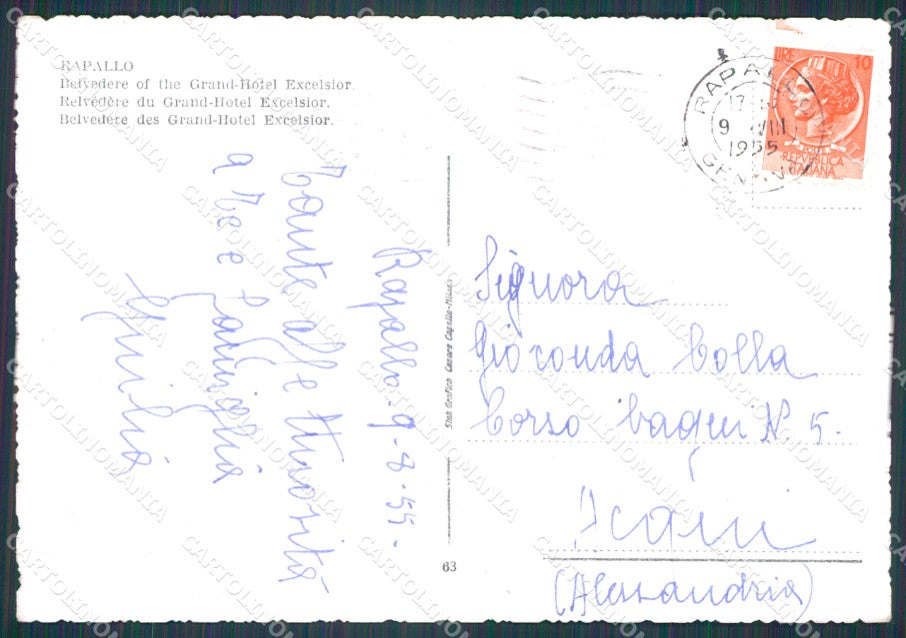 RAPALLO
Belvedere of the Grand-Hotel Excelsior.
Belvédère du Grand-Hotel Excelsior.
Belvedere des Grand-Hotel Excelsior.
LIRE 10
POSTE
REPVBBLICA
ITALIANA
RAPALLO
9 VIII
1955
GENOVA
Rapallo 9-8-55.
Tante affettuosità
a Te e famiglia
Signora
Gioconda Colla
Corso Bagni N 5.
Acqui
(Alessandria)
Stab. Grafico Cesare Capello-Milano
63
CARTOLINOMANIA